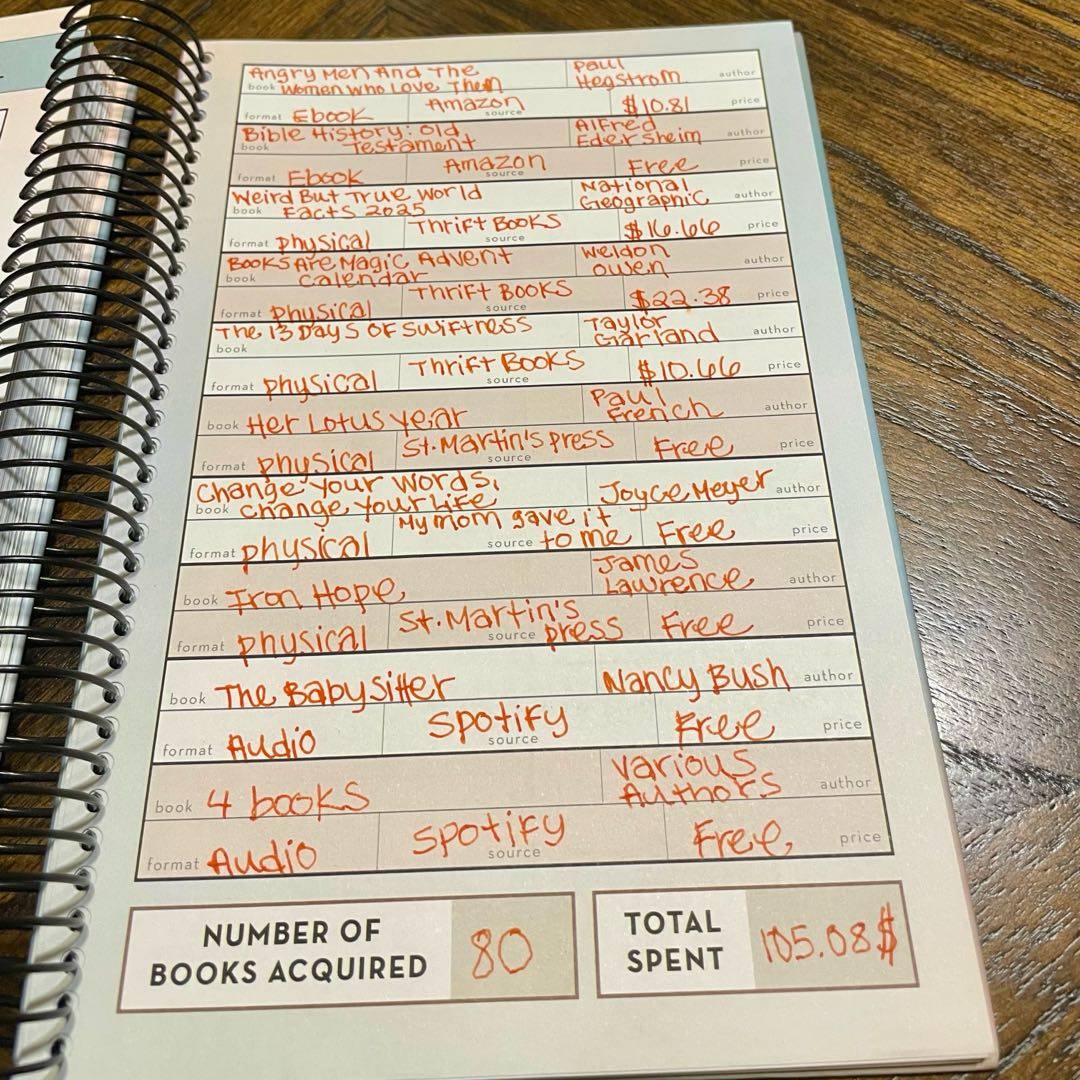 Angry Men And The
book Women Who Love Them
Paul
Hegstrom author
format Ebook
Amazon
source
$10.81 price
Bible History: Old
book Testament
Alfred
Edersheim author
format Ebook
Amazon
source
Free price
Weird But True World
book Facts 2025
National
Geographic author
format physical
Thrift Books
source
$16.66 price
Books Are Magic Advent
book calendar
Weldon
owen author
format physical
Thrift Books
source
$22.38 price
The 13 Days of Swiftness
book
Taylor
Garland author
format physical
Thrift Books
source
$10.66 price
book Her Lotus year
Paul
French author
format physical
St. Martin's press
source
Free price
Change Your Words,
book Change Your Life
Joyce Meyer author
format physical
My mom gave it
source to me
Free price
book Iron Hope
James
Lawrence author
format physical
St. Martin's
source press
Free price
book The Babysitter
Nancy Bush author
format Audio
Spotify
source
Free price
book 4 books
various
Authors author
format Audio
Spotify
source
Free price
NUMBER OF
BOOKS ACQUIRED
80
TOTAL
SPENT
105.08$